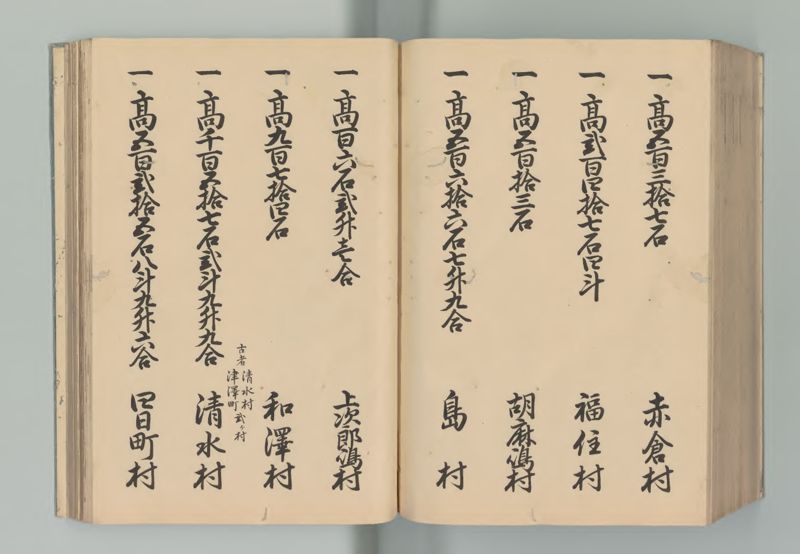 一 高五百三拾七石 赤倉村
一 高弐百四拾七石四斗 福住村
一 高五百拾三石 胡麻嶋村
一 高五百六拾六石七升九合 島村
一 高百六石弐升壱合 上次郎嶋村
一 高九百七拾四石 和澤村
古者清水村
津澤町弐ヶ村
一 高千百五拾七石弐斗九升九合 清水村
一 高五百弐拾五石八斗九升六合 四日町村